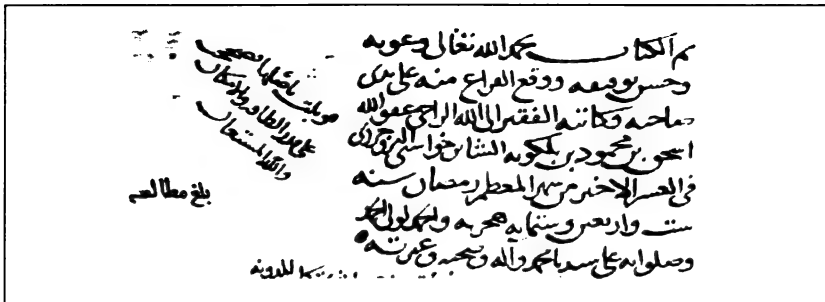 تم الكتاب بحمد الله تعالى وعونه
وحسن توفيقه ووقع الفراغ منه على يدى
صاحبه وكاتبه الفقير الى الله الراجى عفو الله
اسحق بن محمود بن بلكويه البروجردى
فى العشر الاخير من شهر المعظم رمضان سنه
ست واربعين وستمايه هجريه والحمد لولى الحمد
وصلواته على سيدنا محمد وآله وصحبه وعترته
قوبلت باصلها فصحت
على قدر الطاقه والامكان
والله المستعان
بلغ مطالعه